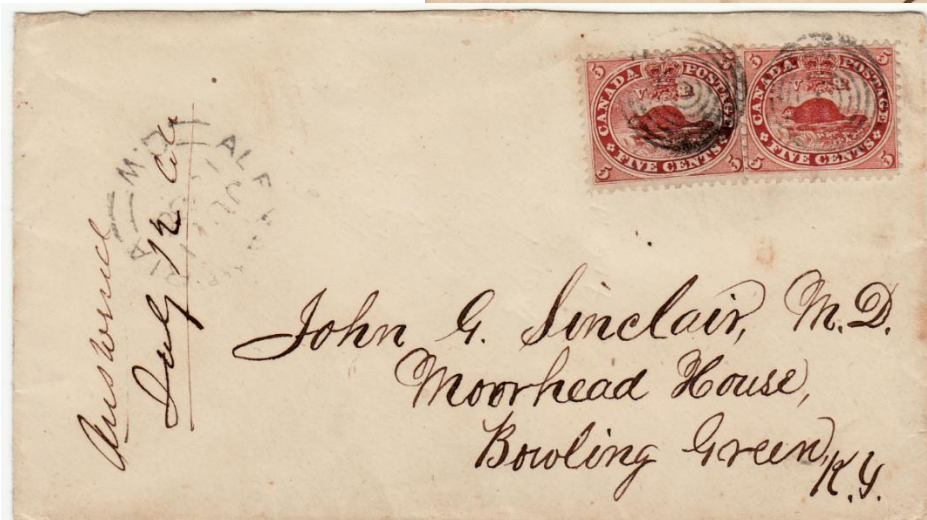 5 CANADA POSTAGE 5
V R
5 FIVE CENTS 5
5 CANADA POSTAGE 5
V R
5 FIVE CENTS 5
Answered
July 12
John G. Sinclair, M.D.
Moorhead House,
Bowling Green,
K.Y.